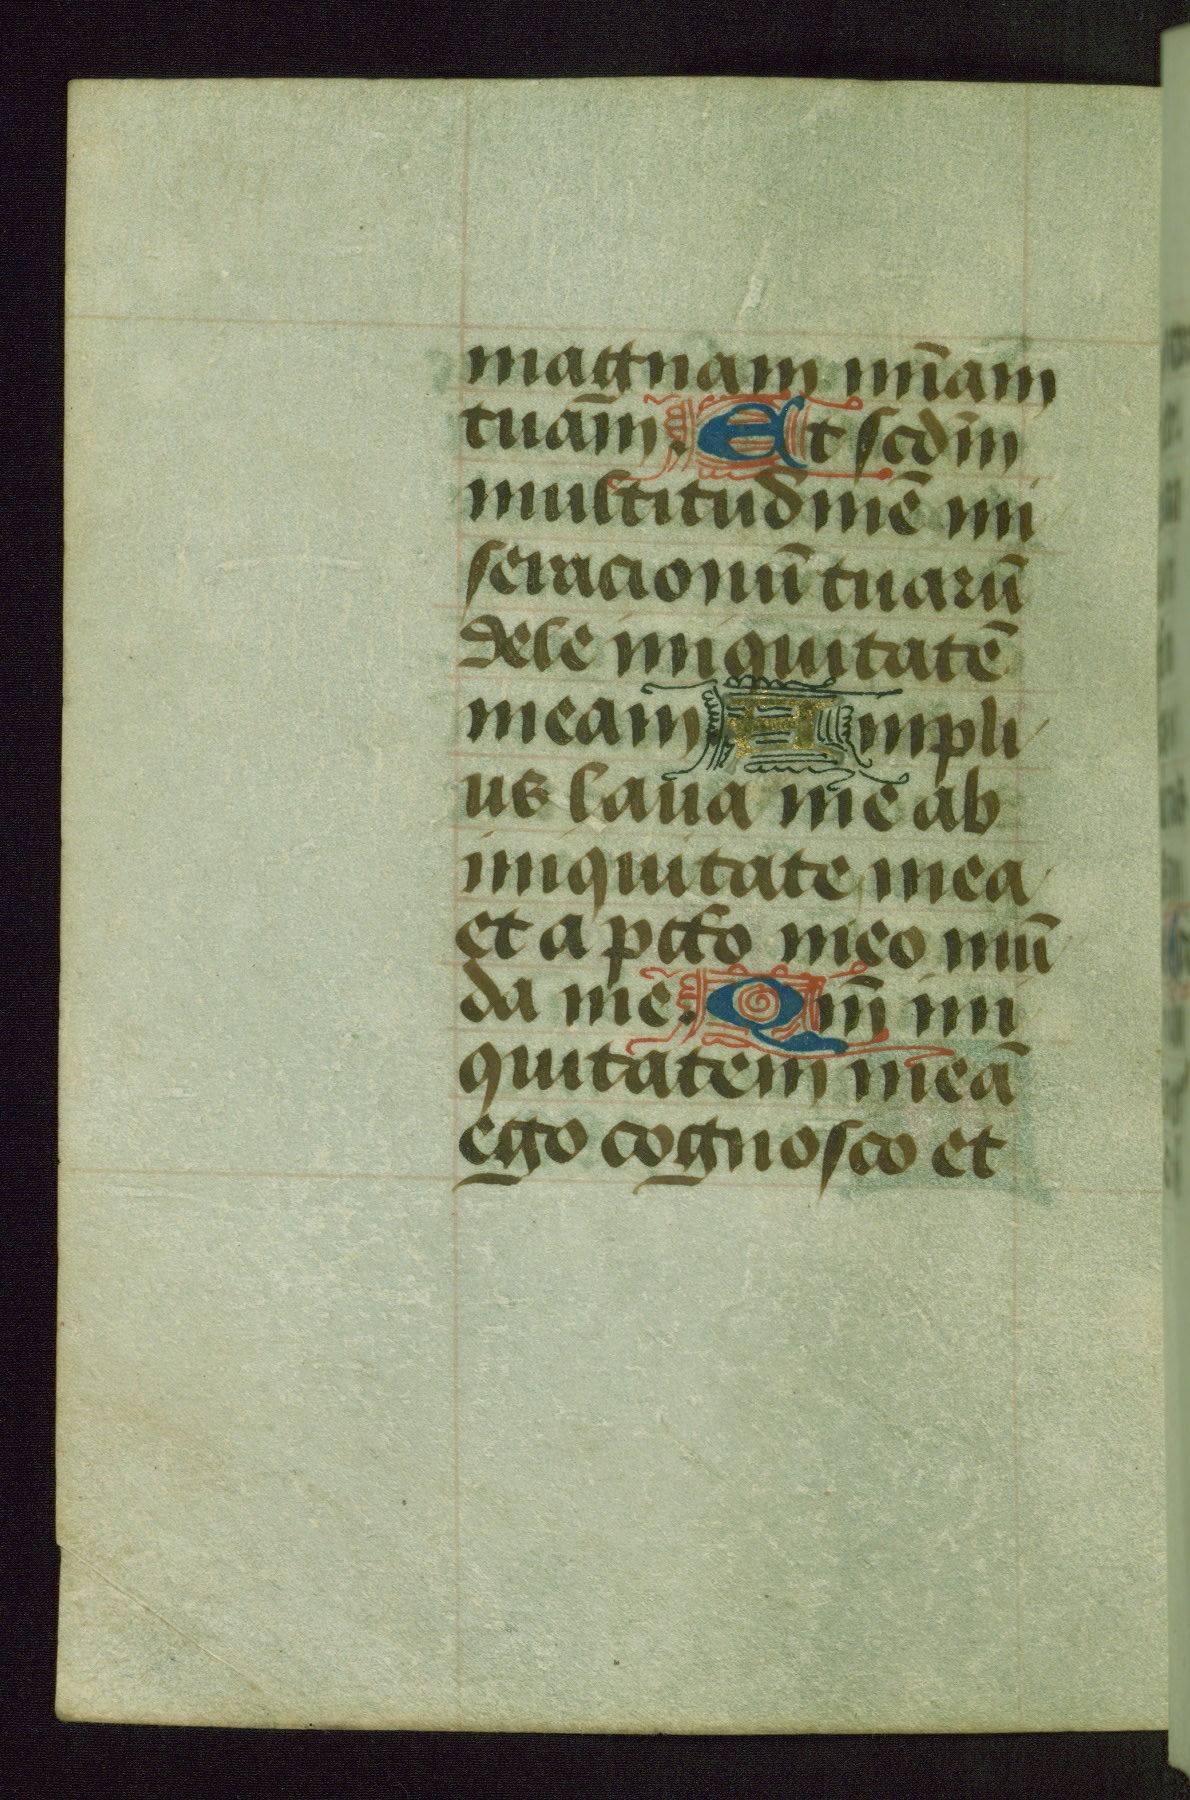 magnam mīam
tuam̄. Et scdm̄
multitudinē mi
seracionū tuarū
dele iniquitatē
meam Ampli
us laua me ab
iniquitate mea
et a pcc̄o meo mū
da me. Qm̄ ini
quitatem meā
ego cognosco et